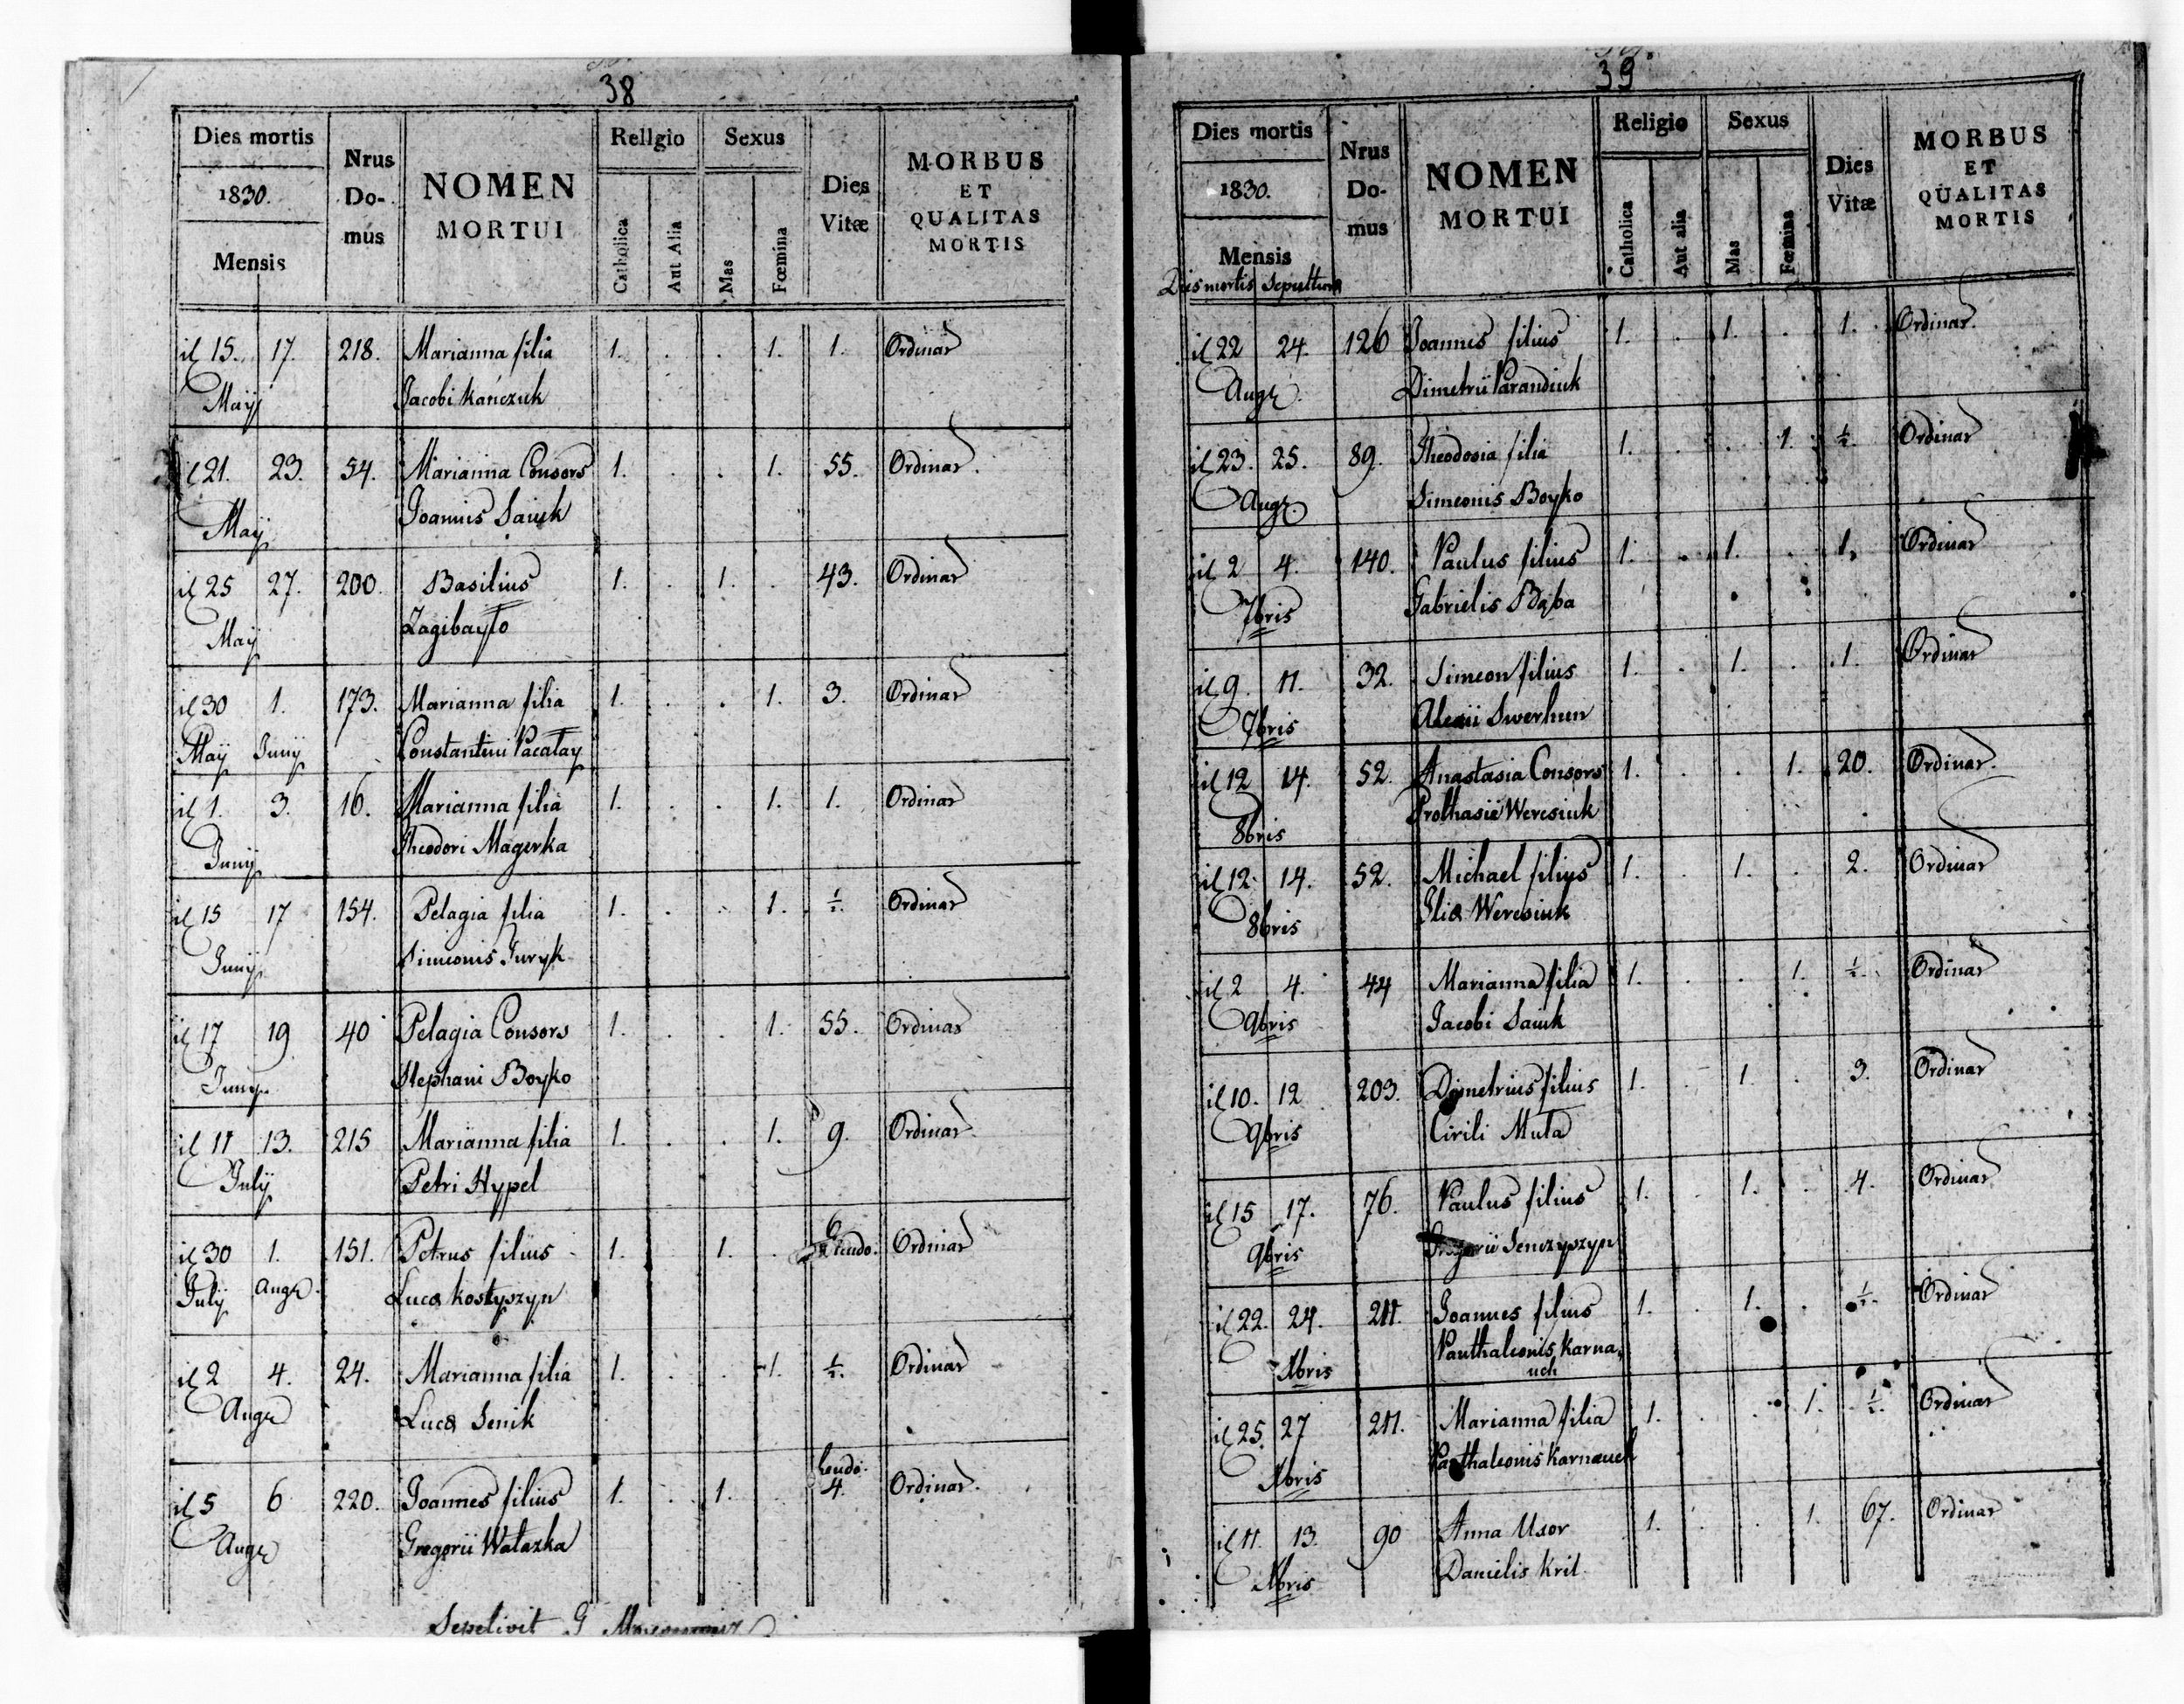 38
Dies mortis
1830.
Mensis
Nrus Do- mus
NOMEN
MORTUI
Rellgio
Catholica
Aut Alia
Sexus
Mas
Fœmina
Dies Vitæ
MORBUS
ET
QUALITAS
MORTIS
il 15. 17. 218. Marianna filia 1. . . 1. 1. Ordinar
Maÿ Jacobi Kańczuk
il 21. 23. 54. Marianna Consors 1. . . 1. 55. Ordinar.
Maÿ Joannis Sauk
il 25 27. 200. Basilius 1. . 1. . 43. Ordinar
Maÿ Zagibayło
il 30 1. 173. Marianna filia 1. . . 1. 3. Ordinar
Maÿ Junÿ Constantini Pacałay
il 1. 3. 16. Marianna filia 1. . . 1. 1. Ordinar
Junÿ Theodori Magerka
il 15 17 154. Pelagia filia 1. . . 1. ½. Ordinar
Junÿ Simeonis Juryk
il 17 19 40 Pelagia Consors 1. . . 1. 55. Ordinar
Juny Stephani Boyko
il 11 13. 215 Marianna filia 1. . . 1. 9. Ordinar
Julÿ Petri Hypel
il 30 1. 151. Petrus filius 1. . 1. . 6 Ordinar
Julÿ Aug Lucæ Kostyszyn
il 2 4. 24. Marianna filia 1. . . 1. ½. Ordinar
Aug Lucæ Senik
il 5 6 220. Joannes filius 1. . 1. 4. Ordinar.
Aug Gregorii Watazka
Sepelivit G
39
Dies mortis
1830.
Mensis
Dies mortis Sepultura
Nrus Do- mus
NOMEN
MORTUI
Religio
Catholica
Aut alia
Sexus
Mas
Fœmina
Dies Vitæ
MORBUS
ET
QUALITAS
MORTIS
il 22 24. 126 Joannes filius 1. . 1. . 1. Ordinar.
Aug Dimetrii Parandiuk
il 23. 25. 89. Theodosia filia 1. . . 1. ½. Ordinar
Aug Simeonis Boyko
il 2 4. 140. Paulus filius 1. . 1. . 1. Ordinar
7bris Gabrielis Bąba
il 9. 11. 32. Simeon filius 1. . 1. . 1. Ordinar
7bris Alexii Swerhun
il 12 14. 52. Anastasia Consors 1. . . 1. 20. Ordinar.
8bris Prothasii Weresiuk
il 12. 14. 52. Michael filius 1. . 1. . 2. Ordinar
8bris Iliæ Weresiuk
il 2 4. 44 Marianna filia 1. . . 1. ½. Ordinar
9bris Jacobi Sauk
il 10. 12 203. Dimetrius filius 1. . 1. . 3. Ordinar
9bris Cirili Muła
il 15 17. 76. Paulus filius 1. . 1. . 4. Ordinar
9bris Gregorii Senczyszyn
il 22. 24. 211. Joannes filius 1. . 1. . ½. Ordinar
Xbris Panthaleonis Karna-
uch
il 25. 27 211. Marianna filia 1. . . 1. ½. Ordinar
Xbris Panthaleonis Karnauch
il 11. 13. 90 Anna Uxor 1. . . 1. 67. Ordinar
Xbris Danielis Kril.